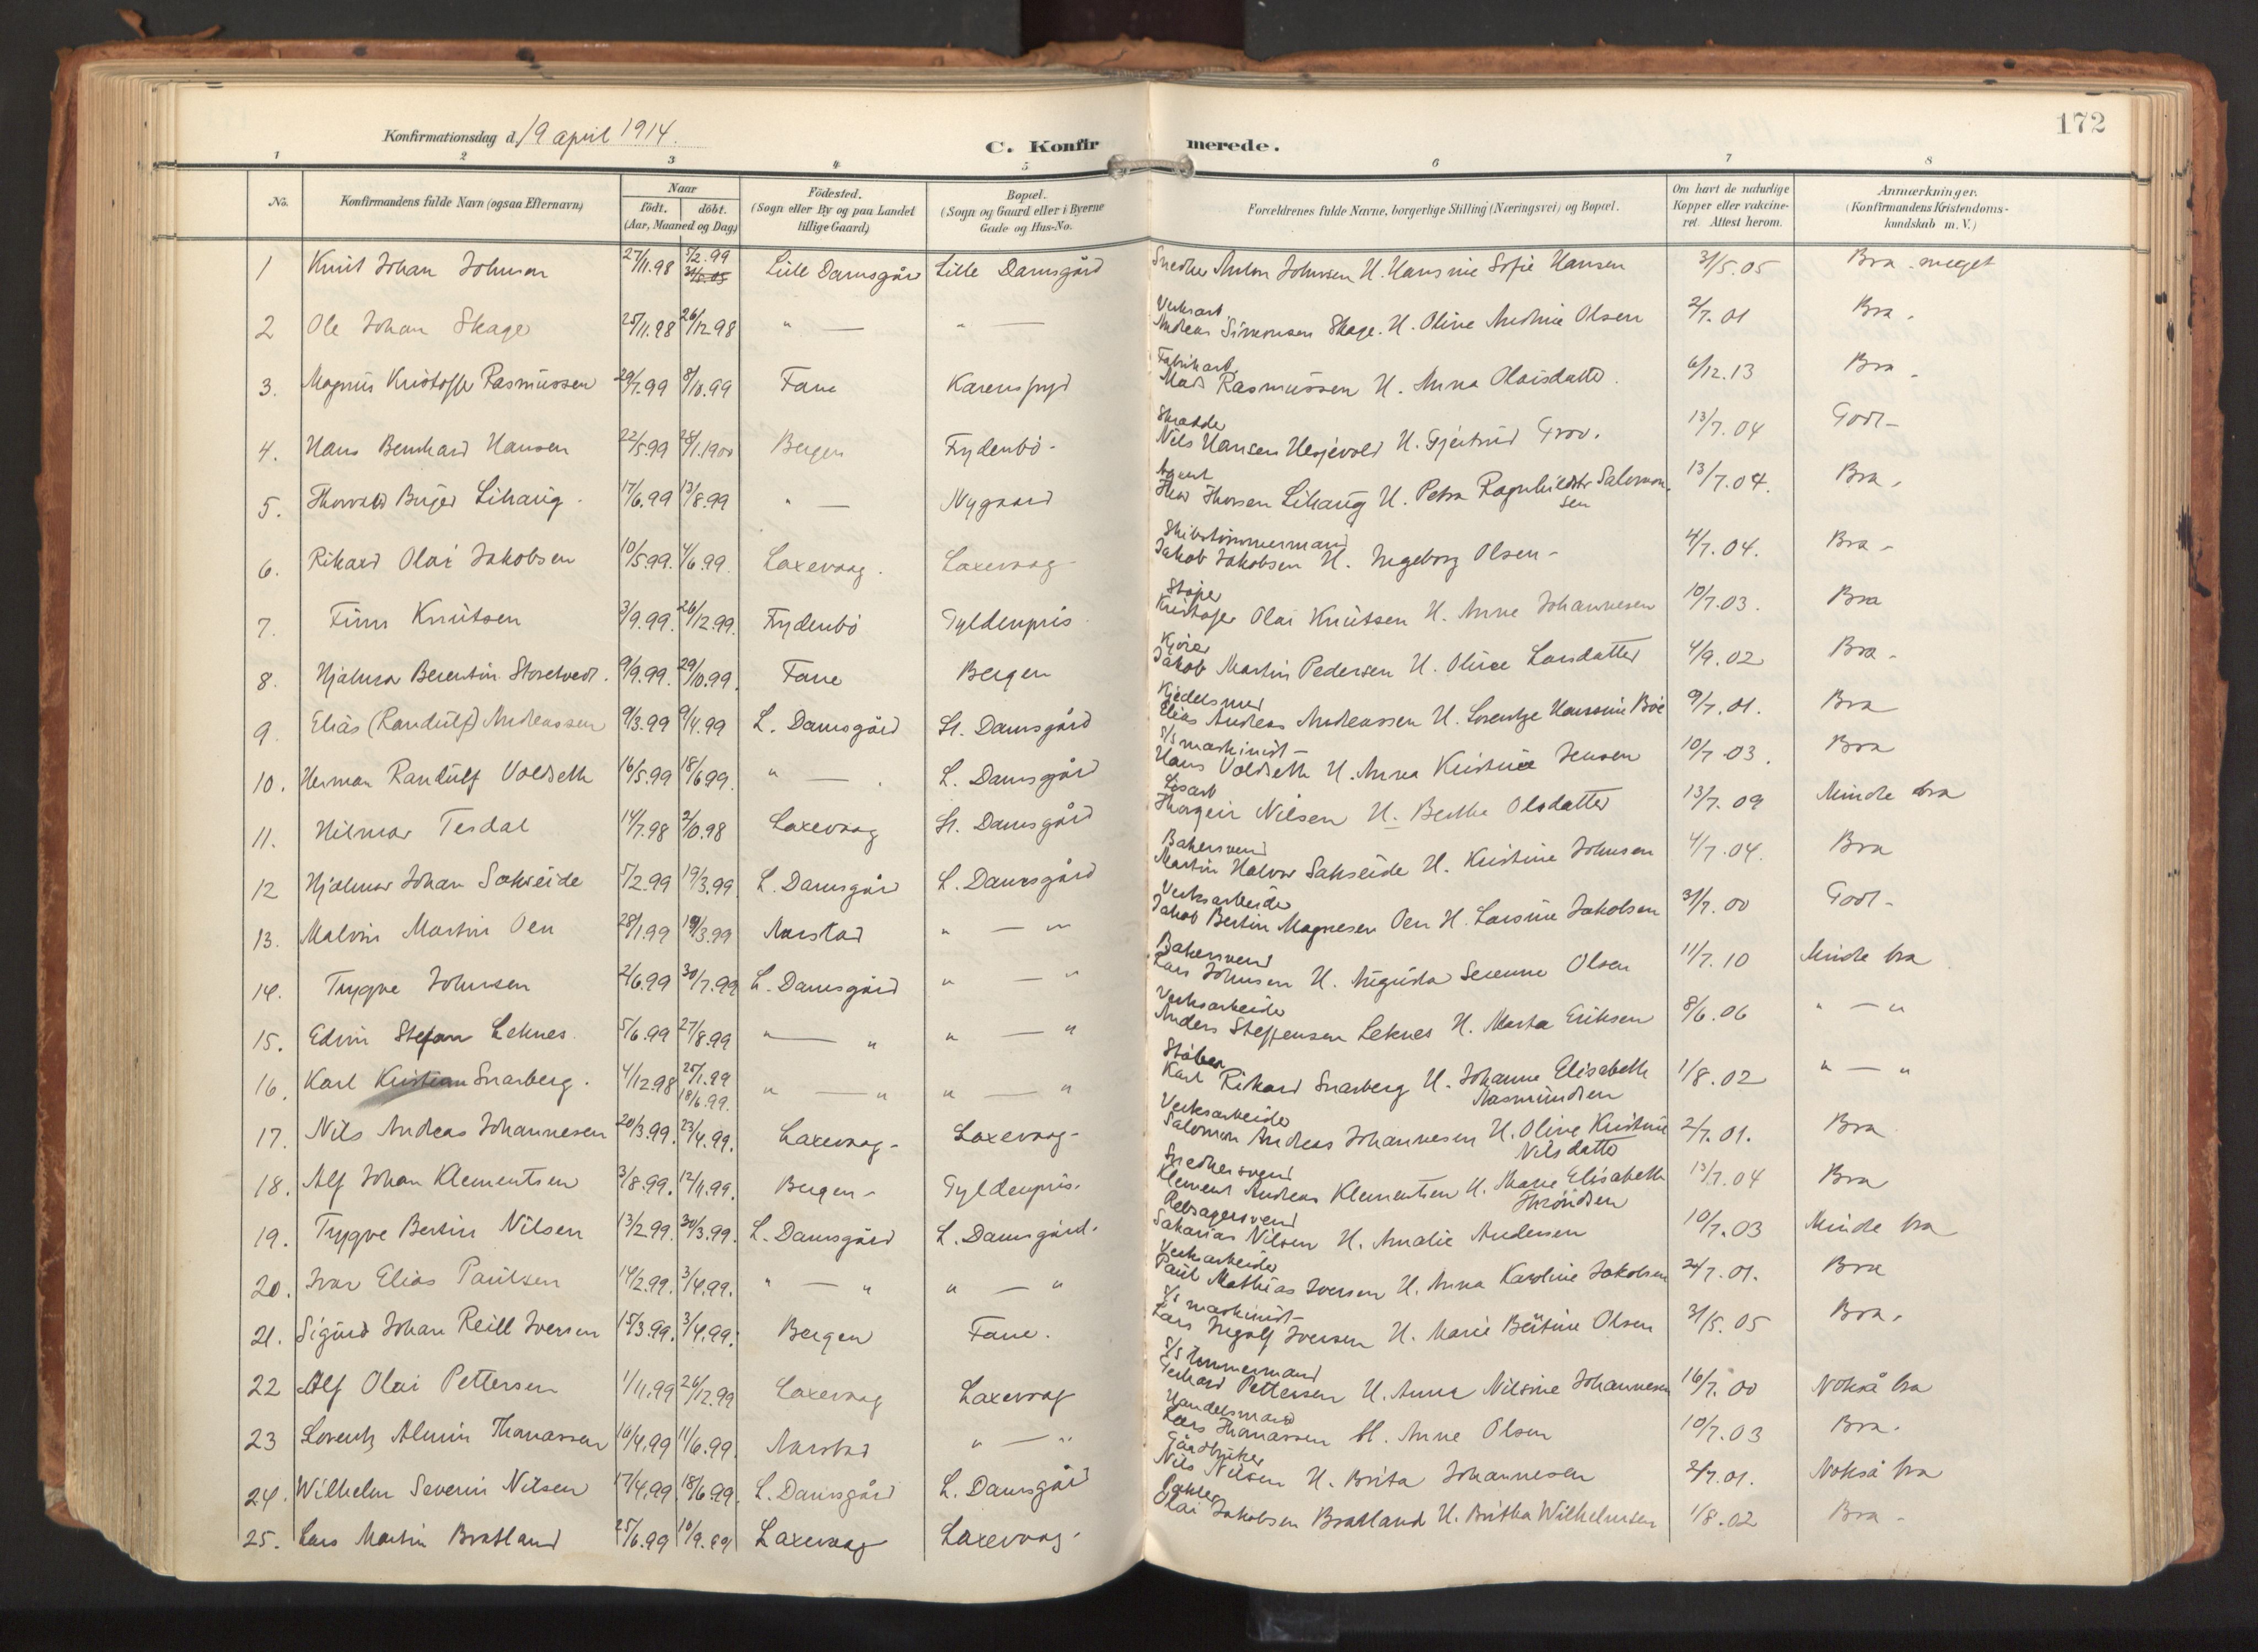 172
Konfirmationsdag d. 19 april 1914.
C. Konfirmerede.
1 2 3 4 5 6 7 8
No.
Konfirmandens fulde Navn (ogsaa Efternavn)
Naar
födt. döbt.
(Aar, Maaned og Dag)
Födested.
(Sogn eller By og paa Landet
tillige Gaard)
Bopæl.
(Sogn og Gaard eller i Byerne
Gade og Hus-No.
Forældrenes fulde Navne, borgerlige Stilling (Næringsvei) og Bopæl.
Om havt de naturlige
Kopper eller vakcine-
ret. Attest herom.
Anmærkninger.
(Konfirmandens Kristendoms-
kundskab m. V.)
1 Knut Johan Johnsen 27/11.98 5/2.99 Lille Damsgår Lille Damsgård Snedker Anton Johnsen H. Hansine Sofie Hansen 31/5.05 Bra. meget
31/5.05
Verksarb
2 Ole Johan Skage 25/11.98 26/12.98 " — " — Andreas Simonsen Skage. H. Olive Andrine Olsen 2/7.01 Bra.
Fabrikarb.
3. Magnus Kristoffer Rasmussen 29/7.99 8/10.99 Fane Karenslyst Mads Rasmussen H. Anna Olaisdatter. 6/12.13 Bra.
Skrædder
4. Hans Bernhard Hansen 22/5.99 28/1.1900 Bergen Frydenbö- Nils Hansen Hesjevold H. Gjertrud Grov. 13/7.04 Godt-
Agent
5. Thorvald Birger Lihaug. 17/6.99 13/8.99 " — Nygaard Thor Thorsen Lihaug H. Petra Ragnhild Salomon- 13/7.04. Bra.
sen
Skibstömmermand
6. Rikard Olai Jakobsen 10/5.99. 4/6.99. Laxevaag. Laxevaag- Jakob Jakobsen H. Ingeborg Olsen- 4/7.04. Bra-
Stöper
7. Finn Knutsen 3/9.99. 26/12.99. Frydenbö Gyldenpris Kristofer Olai Knutsen H. Anne Johannesen 10/7.03. Bra
Kjörer
8. Hjalmar Berentin Storetvedt. 9/9.99. 29/10.99. Fane Bergen Jakob Martin Pedersen H. Oline Larsdatter 4/9.02 Bra-
Kjedelsmed
9. Elias (Randulf) Andreassen 9/3.99 9/4.99 L. Damsgård St. Damsgård Elias Andreas Andreassen H. Lorentze Hansine Böe 9/7.01. Bra
s/s maskinist-
10. Herman Randulf Voldseth 16/5.99 18/6.99. " — . L. Damsgård Hans Voldseth H. Anna Kristine Jensen 10/7.03. Bra
Lösarb
11. Hilmar Tesdal 14/7.98 2/10.98 Laxevaag St. Damsgård Thorgeir Nilsen H. Berthe Olsdatter 13/7.09 Mindre bra
Bakersvend
12 Hjalmar Johan Sakseide 5/2.99 19/3.99. L. Damsgår L. Damsgård Martin Halvor Sakseide H. Kristine Johnsen 4/7.04. Bra
Verksarbeider
13. Malvin Martin Oen 28/1.99 19/3.99 Aarstad " — " Jakob Bertin Magnesen Oen H. Larsine Jakobsen 31/7.00 Godt-
Bakersvend
14. Trygve Johnsen 2/6.99 30/7.99 L. Damsgård " — " Lars Johnsen H. Augusta Serenne Olsen 11/7.10 Mindre bra
Verksarbeider
15. Edvin Stefan Leknes. 5/6.99 27/8.99 " — " " — " Anders Steffensen Leknes H. Marta Eriksen 8/6.06 " — "
Stöber
16. Karl Kristian Snarberg. 4/12.98 25/1.99 " — " " — " Karl Rikard Snarberg H. Johanne Elisabeth 1/8.02 " — "
18/6.99. Aasmundsen
Verksarbeider
17. Nils Andreas Johannesen 20/3.99. 23/4.99. Laxevaag- Laxevaag- Salomon Andreas Johannesen H. Olive Kristine 2/7.01. Bra
Nilsdatter
Snedkersvend
18. Alf Johan Klementsen 3/8.99. 12/11.99. Bergen- Gyldenpris. Klement Andreas Klementsen H. Marie Elisabeth 13/7.04 Bra
Thröndsen
Rebslagersvend
19. Trygve Bertin Nilsen 13/2.99. 30/3.99. L. Damsgård L. Damsgård. Sakarias Nilsen H. Amalie Andersen 10/7.03 Mindre bra
Verksarbeider
20. Ivar Elias Paulsen 14/2.99. 3/4.99. " — " " — " Paul Mathias Iversen H. Anna Karoline Jakobsen 24/7.01. Bra
s/s maskinist-
21. Sigurd Johan Reill Iversen 15/3.99. 3/4.99. Bergen Fane. Lars Ingolf Iversen H. Marie Bertine Olsen 31/5.05 Bra.
s/s tømmermand
22 Alf Olai Pettersen 1/11.99 26/12.99 Laxevaag Laxevaag Gerhard Pettersen H. Anna Nilsine Johannesen 16/7.00 Nokså bra
Handelsmand
23 Lorentz Almin Thomassen 16/4.99 11/6.99. Aarstad " — " Lars Thomassen H. Anne Olsen 10/7.03 Bra.
Gårdbruker
24. Wilhelm Severin Nilsen 17/4.99. 18/6.99. L. Damsgård L. Damsgård Nils Nilsen H. Brita Johannesen 2/7.01. Nokså bra
Pakker
25. Lars Martin Bratland 25/6.99 10/9.99 Laxevaag Laxevaag- Olai Jakobsen Bratland H. Britha Wilhelmsen 1/8.02 Bra-